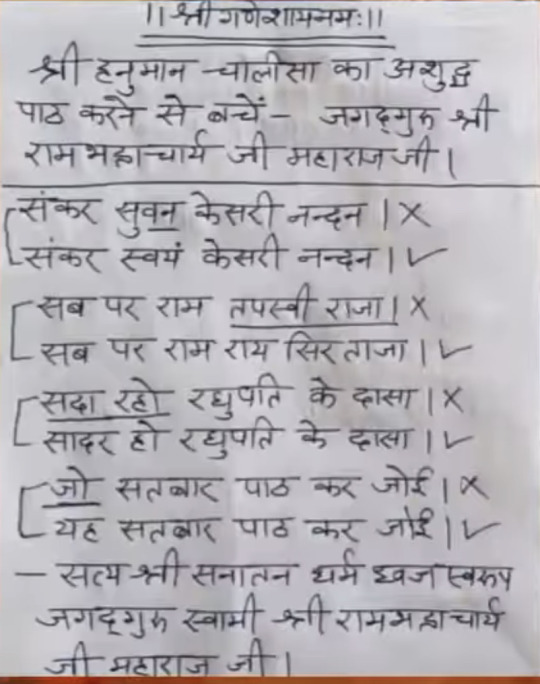 ।। श्री गणेशाय नमः ।।
श्री हनुमान चालीसा का अशुद्ध
पाठ करने से बचें - जगद्गुरु श्री
रामभद्राचार्य जी महाराज जी ।
संकर सुवन केसरी नन्दन । ✗
संकर स्वयं केसरी नन्दन । ✓
सब पर राम तपस्वी राजा । ✗
सब पर राम राय सिरताजा । ✓
सदा रहो रघुपति के दासा । ✗
सादर हो रघुपति के दासा । ✓
जो सतबार पाठ कर जोई । ✗
यह सतबार पाठ कर जोई । ✓
- सत्य श्री सनातन धर्म ध्वज स्वरूप
जगद्गुरु स्वामी श्री रामभद्राचार्य
जी महाराज जी ।